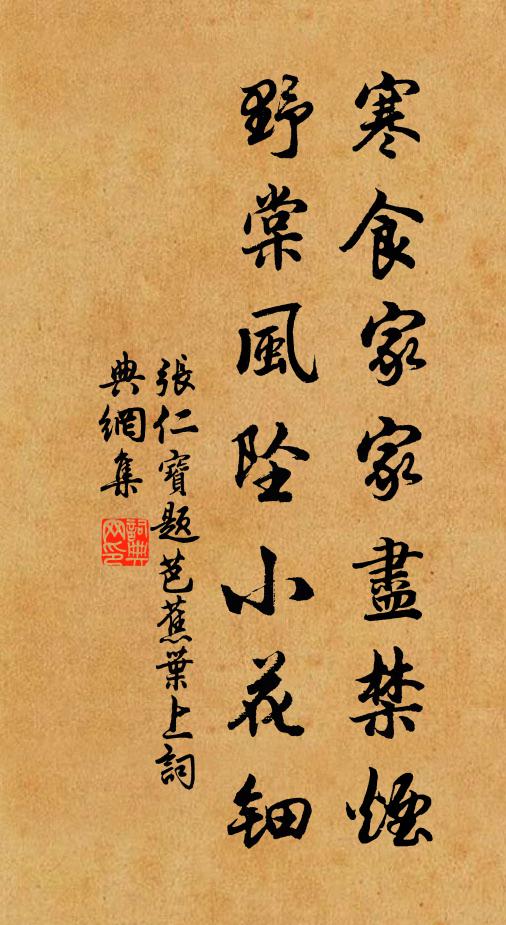 寒食家家盡禁煙
野棠風墜小花鈿
張仁寶題芭蕉葉上詞
典網集
詞典网印